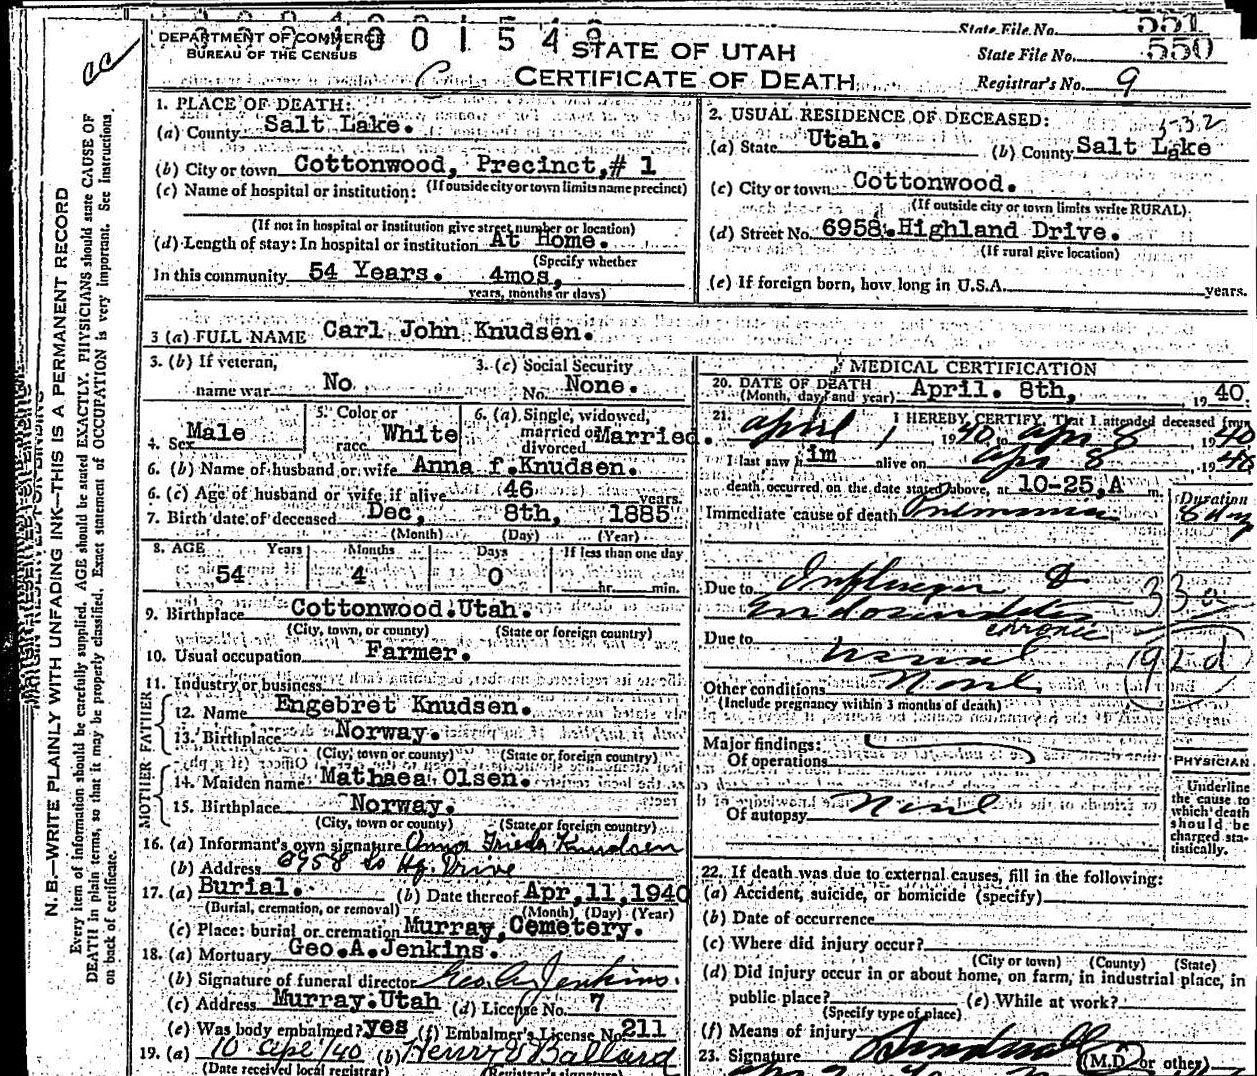 DEPARTMENT OF COMMERCE
BUREAU OF THE CENSUS
STATE OF UTAH
CERTIFICATE OF DEATH
State File No. 551
State File No. 550
Registrar's No. 9
N. B.—WRITE PLAINLY WITH UNFADING INK—THIS IS A PERMANENT RECORD
Every item of information should be carefully supplied. AGE should be stated EXACTLY. PHYSICIANS should state CAUSE OF
DEATH in plain terms, so that it may be properly classified. Exact statement of OCCUPATION is very important. See instructions
on back of certificate.
1. PLACE OF DEATH:
(a) County Salt Lake.
(b) City or town Cottonwood, Precinct,# 1
(If outside city or town limits name precinct)
(c) Name of hospital or institution:
(If not in hospital or Institution give street number or location)
(d) Length of stay: In hospital or institution At Home.
(Specify whether
In this community 54 Years. 4mos,
years, months or days)
2. USUAL RESIDENCE OF DECEASED:
(a) State Utah. (b) County Salt Lake
(c) City or town Cottonwood.
(If outside city or town limits write RURAL)
(d) Street No. 6958.Highland Drive.
(If rural give location)
(e) If foreign born, how long in U.S.A. years.
3 (a) FULL NAME Carl John Knudsen.
3. (b) If veteran,
name war No
3. (c) Social Security
No. None.
4. Sex Male
5. Color or
race White
6. (a) Single, widowed,
married or
divorced Married.
6. (b) Name of husband or wife Anna f.Knudsen.
6. (c) Age of husband or wife if alive 46 years.
7. Birth date of deceased Dec, 8th, 1885
(Month) (Day) (Year)
8. AGE Years Months Days If less than one day
54 4 0 hr. min.
9. Birthplace Cottonwood.Utah.
(City, town, or county) (State or foreign country)
10. Usual occupation Farmer.
11. Industry or business
FATHER
12. Name Engebret Knudsen.
13. Birthplace Norway.
(City, town or county) (State or foreign country)
MOTHER
14. Maiden name Mathaea Olsen.
15. Birthplace Norway.
(City, town or county) (State or foreign country)
16. (a) Informant's own signature Anna Frieda Knudsen
(b) Address 6958 So Hg. Drive
17. (a) Burial. (b) Date thereof Apr,11,1940
(Burial, cremation, or removal) (Month) (Day) (Year)
(c) Place: burial or cremation Murray,Cemetery.
18. (a) Mortuary Geo.A.Jenkins.
(b) Signature of funeral director Geo. A. Jenkins.
(c) Address Murray.Utah (d) License No. 7
(e) Was body embalmed? yes (f) Embalmer's License No. 211
19. (a) 10 Apl/40 (b) Henry Ballard
(Date received local registrar) (Registrar's signature)
MEDICAL CERTIFICATION
20. DATE OF DEATH
(Month, day and year) April. 8th, 1940.
21. I HEREBY CERTIFY, That I attended deceased from
april 1 1940 to apr 8 1940
I last saw him alive on apr 8, 1940
death occurred on the date stated above, at 10-25,A m.
Immediate cause of death Pneumonia
Duration
8 day
Due to Influenza &
Endocarditis
chronic
33a
Due to
92d
Other conditions None
(Include pregnancy within 3 months of death)
Major findings:
Of operations
Of autopsy None
PHYSICIAN
Underline
the cause to
which death
should be
charged sta-
tistically.
22. If death was due to external causes, fill in the following:
(a) Accident, suicide, or homicide (specify)
(b) Date of occurrence
(c) Where did injury occur?
(City or town) (County) (State)
(d) Did injury occur in or about home, on farm, in industrial place, in
public place? (e) While at work?
(Specify type of place)
(f) Means of injury
23. Signature (M.D. or other)